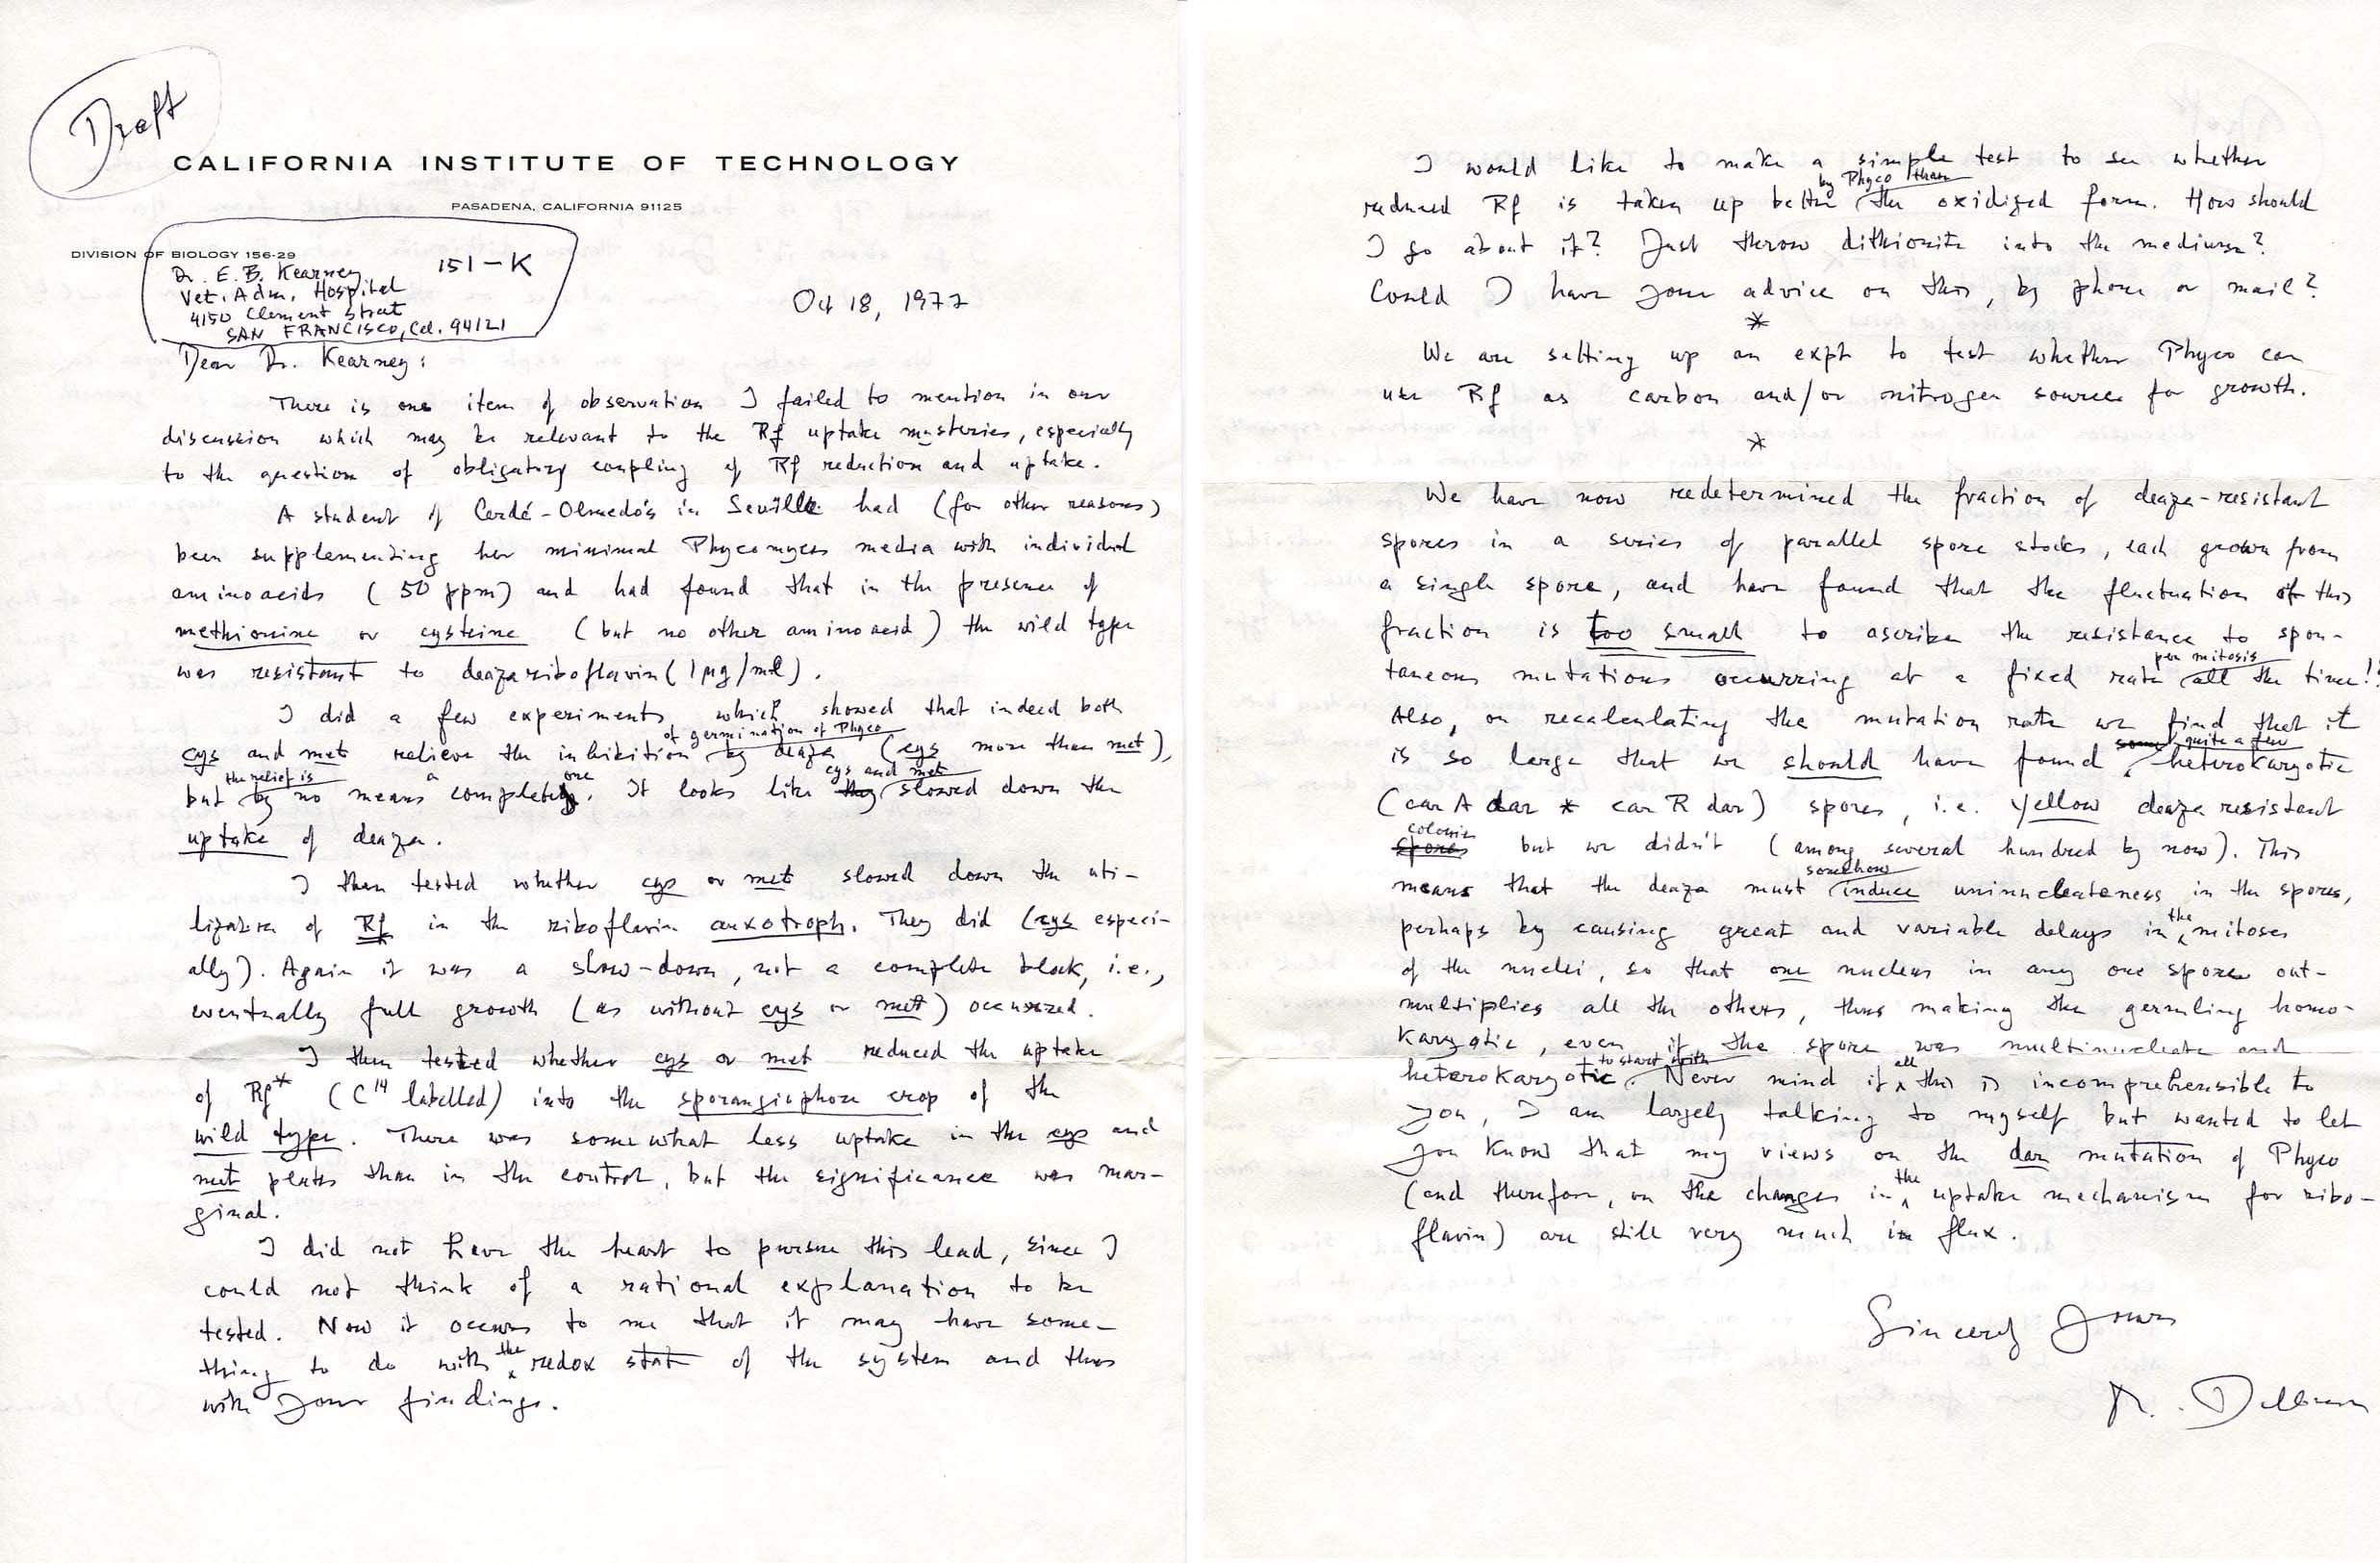 Draft
CALIFORNIA INSTITUTE OF TECHNOLOGY
PASADENA, CALIFORNIA 91125
DIVISION OF BIOLOGY 156-29
Dr. E. B. Kearney 151-K
Vet. Adm. Hospital
4150 Clement Street
SAN FRANCISCO, Cal. 94121
Oct 18, 1977
Dear Dr. Kearney:
There is one item of observation I failed to mention in our
discussion which may be relevant to the Rf uptake mysteries, especially
to the question of obligatory coupling of Rf reduction and uptake.
A student of Cerdá-Olmedo's in Seville had (for other reasons)
been supplementing her minimal Phycomyces media with individual
aminoacids (50 ppm) and had found that in the presence of
methionine or cysteine (but no other aminoacid) the wild type
was resistant to deazariboflavin (1 µg/ml).
I did a few experiments which showed that indeed both
cys and met relieve the inhibition of germination of Phyco by deaza (cys more than met),
but the relief is by no means a complete one. It looks like cys and met slowed down the
uptake of deaza.
I then tested whether cys or met slowed down the uti-
lization of Rf in the riboflavin auxotroph. They did (cys especi-
ally). Again it was a slow-down, not a complete block, i.e.,
eventually full growth (as without cys or met) occurred.
I then tested whether cys or met reduced the uptake
of Rf* (C14 labelled) into the sporangiophore crop of the
wild type. There was somewhat less uptake in the cys and
met plates than in the control, but the significance was mar-
ginal.
I did not have the heart to pursue this lead, since I
could not think of a rational explanation to be
tested. Now it occurs to me that it may have some-
thing to do with the redox state of the system and thus
with your findings.
I would like to make a simple test to see whether
reduced Rf is taken up better by Phyco than the oxidized form. How should
I go about it? Just throw dithionite into the medium?
Could I have your advice on this, by phone or mail?
*
We are setting up an expt to test whether Phyco can
use Rf as carbon and/or nitrogen source for growth.
*
We have now redetermined the fraction of deaza-resistant
spores in a series of parallel spore stocks, each grown from
a single spore, and have found that the fluctuation of this
fraction is too small to ascribe the resistance to spon-
taneous mutations occurring at a fixed rate per mitosis all the time!!
Also, on recalculating the mutation rate we find that it
is so large that we should have found some quite a few heterokaryotic
(car A dar * car R dar) spores, i.e. yellow deaza resistant
spores colonies but we didn't (among several hundred by now). This
means that the deaza must somehow induce uninucleateness in the spores,
perhaps by causing great and variable delays in the mitoses
of the nuclei, so that one nucleus in any one spore out-
multiplies all the others, thus making the germling homo-
karyotic, even if the spore was multinucleate and
heterokaryotic to start with. Never mind if all this is incomprehensible to
you, I am largely talking to myself but wanted to let
you know that my views on the dar mutation of Phyco
(and therefore, on the changes in the uptake mechanism for ribo-
flavin) are still very much in flux.
Sincerely yours
M. Delbrück